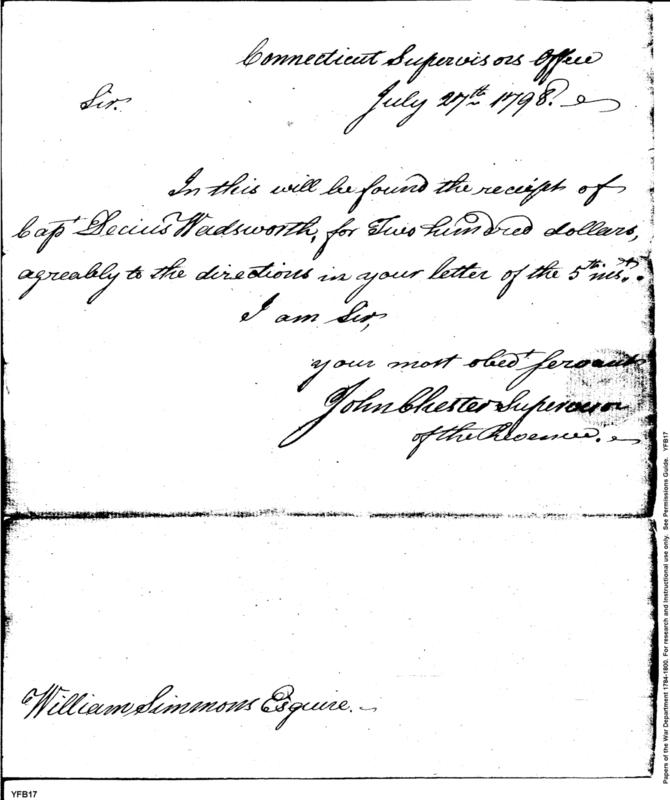 Connecticut Supervisors Office
Sir.
July 27th 1798.
In this will be found the receipt of
Capt Decius Wadsworth, for Two hundred dollars,
agreably to the directions in your letter of the 5th inst.
I am Sir,
your most obedt servant
John Chester Supervisor
of the Revenue.
William Simmons Esquire.
Papers of the War Department 1784-1800. For research and instructional use only. See Permissions Guide. YFB17
YFB17